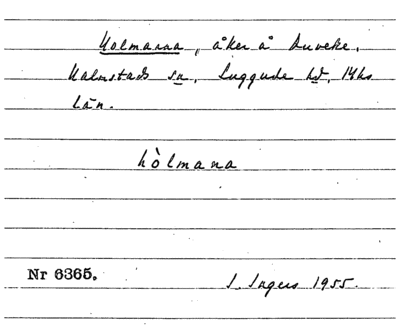 Holmarna, åker å Duveke,
Halmstads sn, Luggude hd, Mhs
län.
hòlmana
Nr 6365.
I. Ingers 1955.